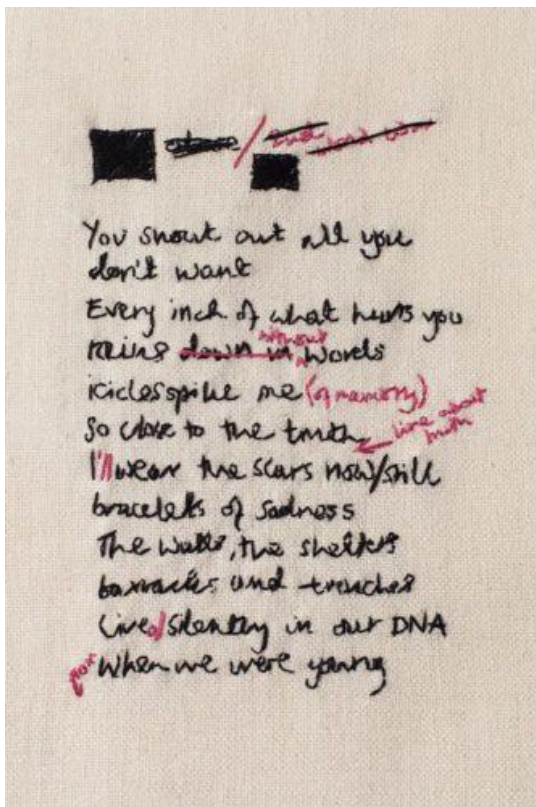 You shout out all you
don't want
Every inch of what hurts you
rains down in without words
icicles spike me (of memory)
So close to the truth line about truth
I'll wear the scars now/still
bracelets of sadness
The walls, the shelters
barracks and trenches
Lived/silently in our DNA
When we were young